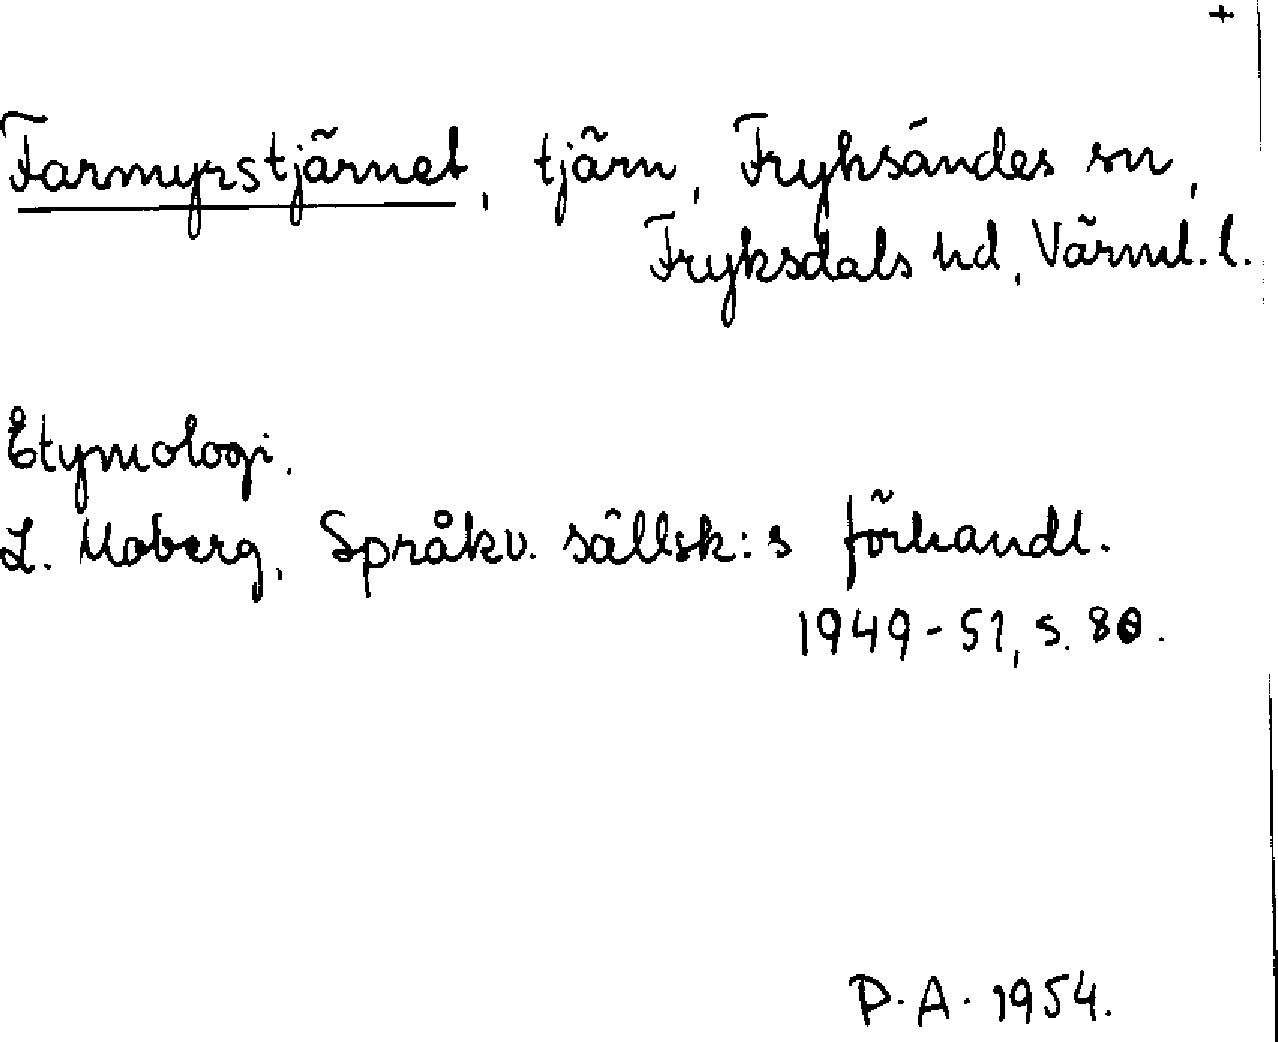 +
Farmyrstjärnet, tjärn, Fryksändes sn,
Fryksdals hd, Värml. l.
Etymologi.
L. Moberg, Språkv. sällsk:s förhandl.
1949-51, s. 80.
P.A. 1954.